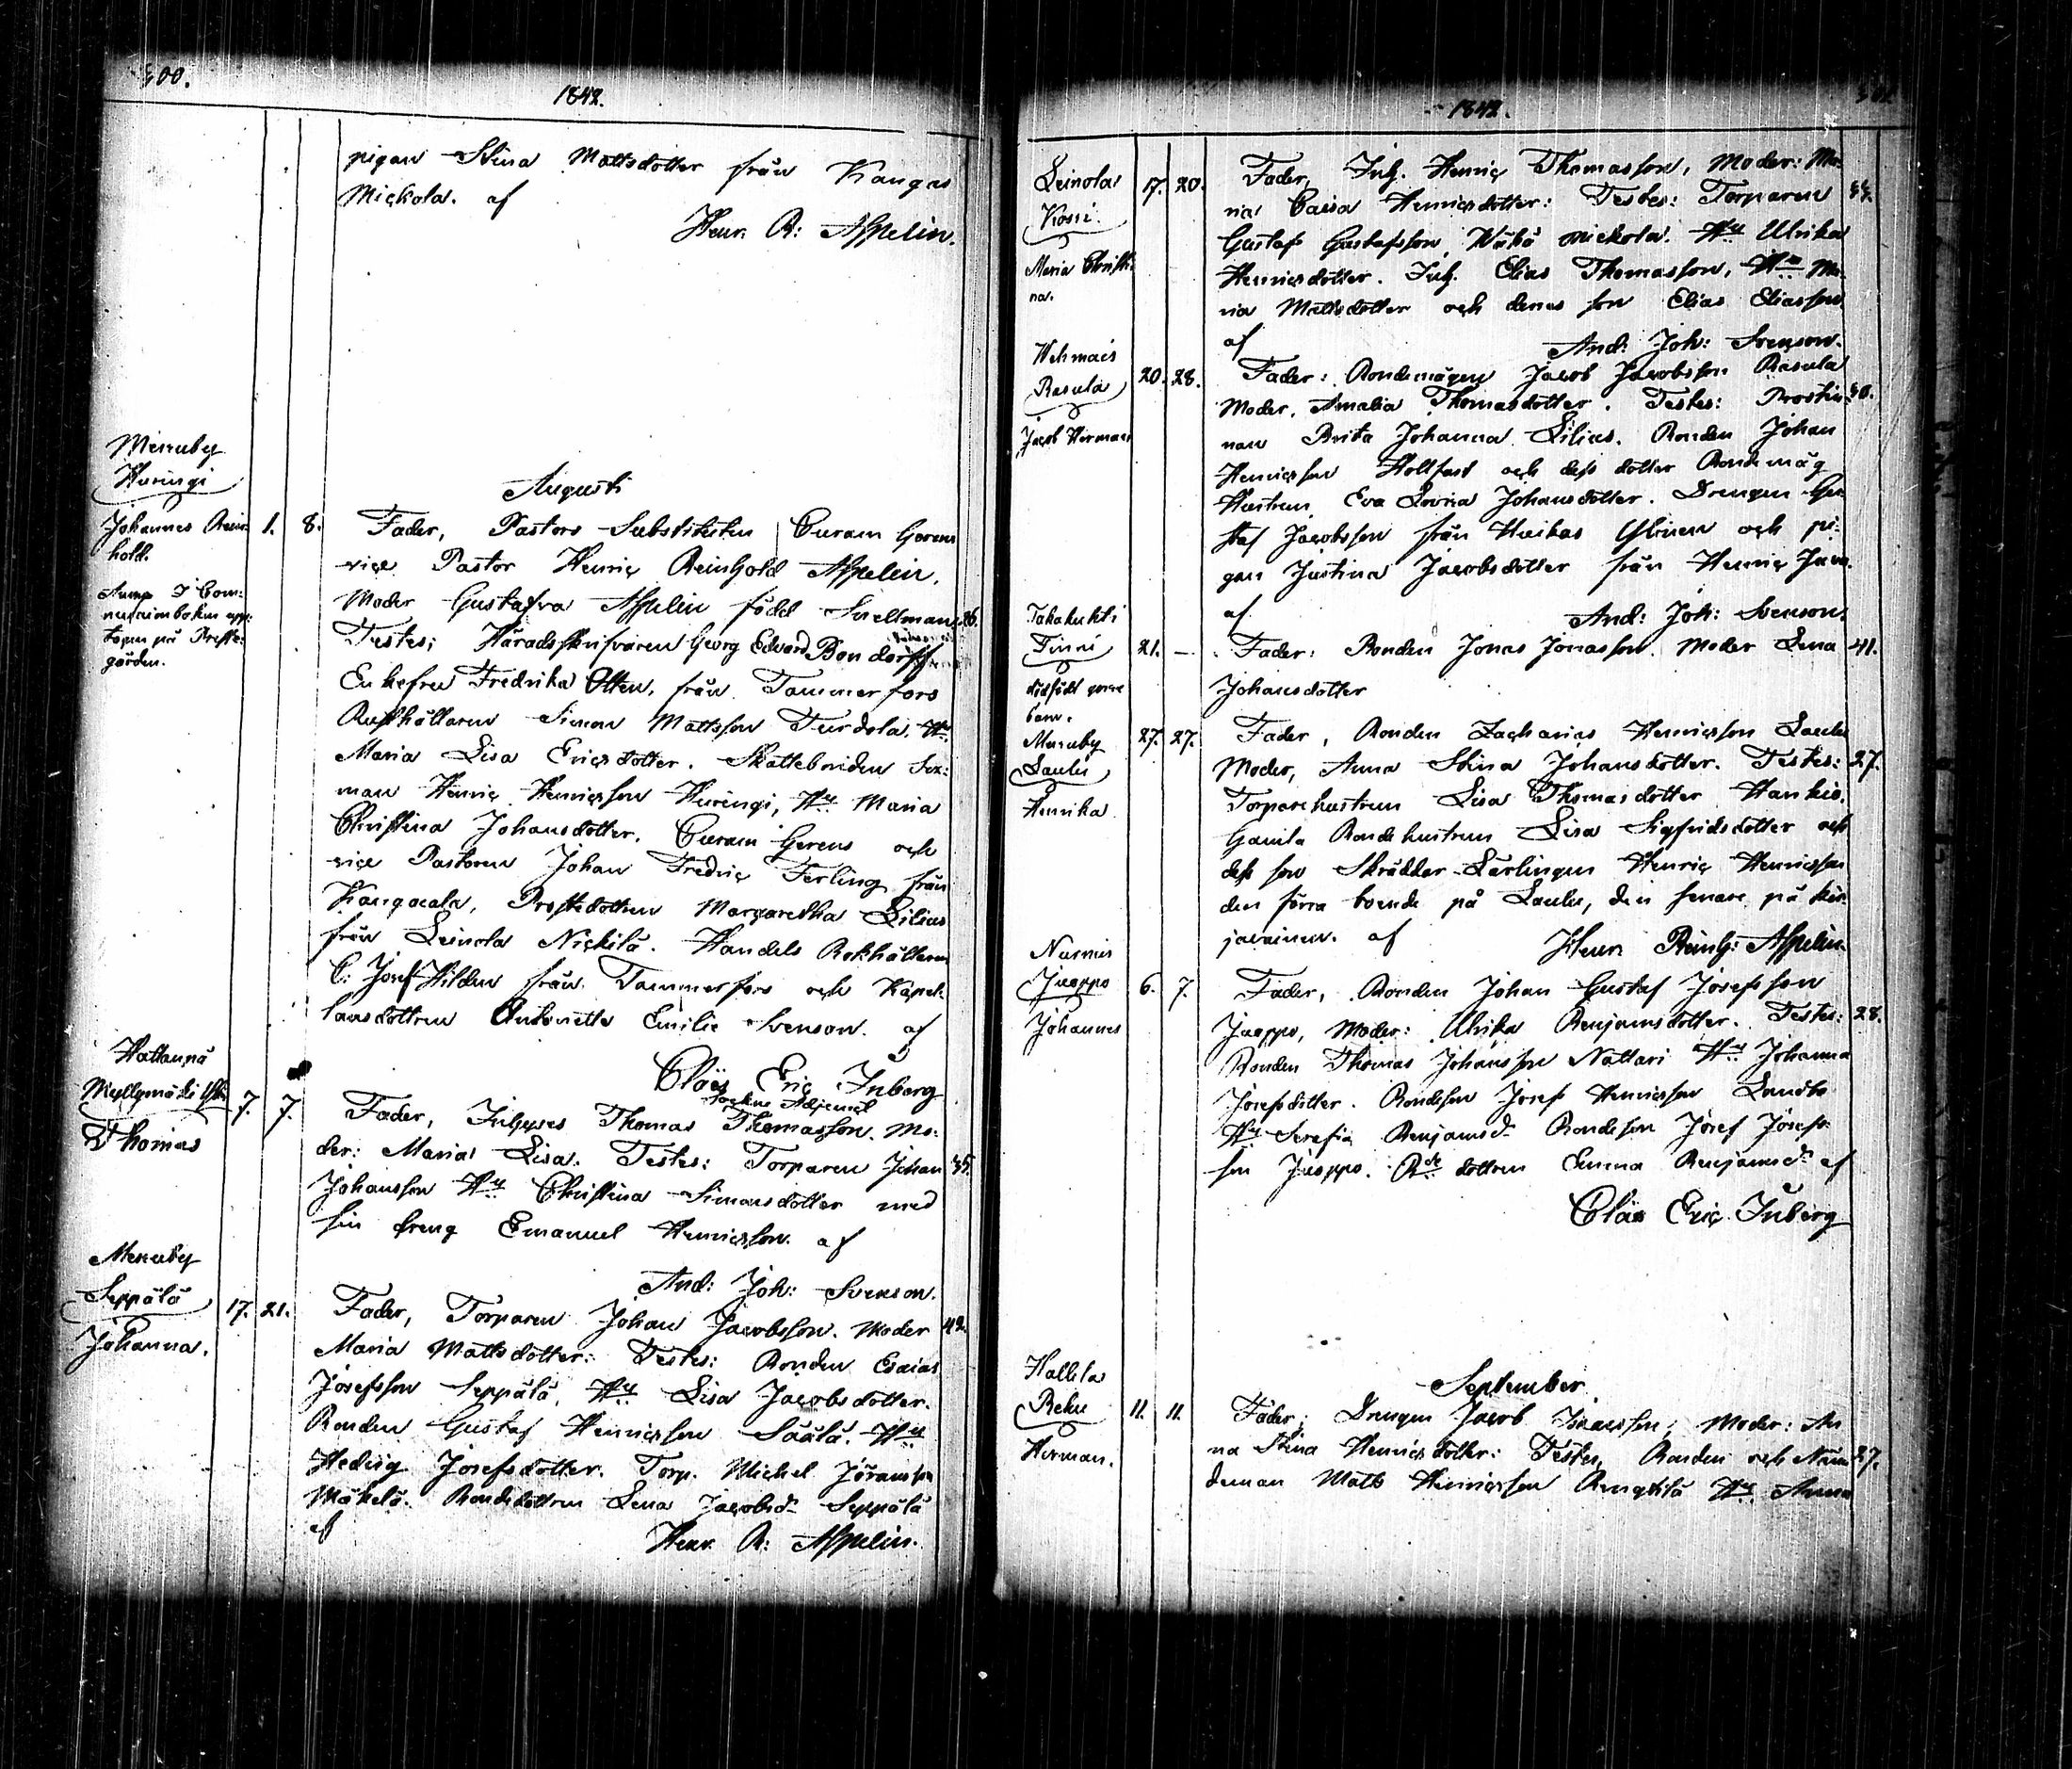 300.
1842.
pigan Stina Mattsdotter från Kangas
Mickola. af
Henr. R: Aspelin.
Messuby
Huringi
Johannes Rein-
hold.
Augusti
1. 8. Fader, Pastors Substituten Curam Gerens
vice Pastor Henric Reinhold Aspelin.
Moder Gustafva Aspelin född Snellman 26.
Testes: Häradsskrifvaren Georg Edvard Bondorff
Enkefru Fredrika Otten, från Tammerfors
Rusthållaren Simon Mattsson Turdola. Hu
Maria Lisa Ericsdotter. Skattebonden Sex-
man Henric Henricsson Huringi, Hu Maria
Christina Johansdotter. Curam Gerens och
vice Pastoren Johan Fredric Ferling från
Kangasala, Prostdottren Margaretha Lilius
från Leinola Nickilä. Handels Bokhållaren
C. Josef Hilden från Tammerfors och Kapel-
lansdottren Antoinette Emilie Svenson. af
Clas Eric Inberg
Sockne Adjunct
Hattanpä
Thomas
7. 7. Fader, Inhyses Thomas Thomasson. Mo-
der: Maria Lisa. Testes: Torparen Johan 35.
Johansson Hu Christina Simonsdotter med
sin dreng Emanuel Henricsson. af
And: Joh: Svenson.
Messuby
Seppälä
Johanna.
17. 21. Fader, Torparen Johan Jacobsson. Moder 42.
Maria Mattsdotter: Testes: Bonden Esaias
Josefsson Seppälä, Hu Lisa Jacobsdotter.
Bonden Gustaf Henricsson Säälä. Hu
Hedvig Josefsdotter. Torp. Michel Jöransson
Mäkelä. Bondedottren Lena Jacobsdr Seppälä
af
Henr. R: Aspelin.
1842.
Leinola
Kossi
Maria Christi-
na.
17. 20. Fader, Inh. Henric Thomasson, Moder: Ma-
ria Caisa Henricsdotter: Testes: Torparen
Gustaf Gustafsson Wähä Mickola. Hu Ulrika
Henricsdotter. Inh. Elias Thomasson, Hu Ma-
ria Mattsdotter och denes son Elias Eliasson
af
And: Joh: Svenson.
Wehmais
Rasula
Jacob Herman
20. 28. Fader: Bondemågen Jacob Jacobsson Rasula
Moder, Amalia Thomasdotter. Testes: Prostin-
nan Brita Johanna Lilius. Bonden Johan
Henricsson Hollfast och dess dotter Bondemåg
Hustrun Eva Lovisa Johansdotter. Drengen Gu-
staf Jacobsson från Huikas Ylinen och pi-
gan Justina Jacobsdotter från Henric Juva.
af
And: Joh: Svenson.
Takahuhti
Finni
dödfödt gosse
barn.
21. — Fader: Bonden Jonas Jonasson. Moder Lena 41.
Johansdotter
Messuby
Laulu
Henrika
27. 27. Fader, Bonden Zacharias Henricsson Laulu
Moder, Anna Stina Johansdotter. Testes: 27.
Torparehustrun Lisa Thomasdotter Hankio.
Gamla Bondehustrun Lisa Sigfridsdotter och
dess son Skräddar-Lärlingen Henric Henricsson
den förra boende på Laulu, den senare på
af
Henr. Reinh: Aspelin
Nurmis
Juoppo
Johannes
6. 7. Fader, Bonden Johan Gustaf Josefsson
Juoppo, Moder: Ulrika Benjamsdotter. Testes: 28.
Bonden Thomas Johansson Nattari Hu Johanna
Josefsdotter. Bondeson Josef Henricsson
Hu Serafia Benjamsdr Bondeson Josef Josefs-
son Juoppo. Bde dottren Emma Benjamsdr af
Clas Eric Inberg
Hallila
Reku
Herman.
September
11. 11. Fader: Drengen Jacob Isacsson; Moder: An-
na Stina Henricsdotter: Testes, Bonden och Näm- 27.
deman Matts Henricsson Hu Anna